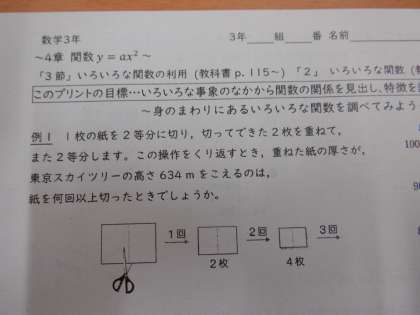 数学3年
3年 組 番 名前
～4章 関数 y = ax² ～
「3節」いろいろな関数の利用 (教科書 p.115～) 「2」 いろいろな関数 (
このプリントの目標…いろいろな事象のなかから関数の関係を見出し、特徴を
～身のまわりにあるいろいろな関数を調べてみよう
例1 1枚の紙を2等分に切り，切ってできた2枚を重ねて，
また2等分します。この操作をくり返すとき，重ねた紙の厚さが，
100
東京スカイツリーの高さ634mをこえるのは，
紙を何回以上切ったときでしょうか。
1回 2回 3回
2枚 4枚